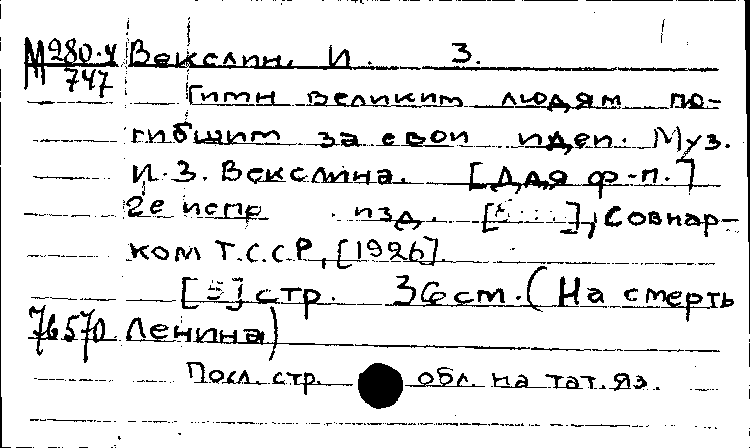 М 280-4 Векслин, И. З.
747
Гимн великим людям по-
гибшим за свои идеи. Муз.
И. З. Векслина. [Для ф-п.]
2е испр изд. [], Совнар-
ком Т.С.С.Р, [1926].
[5] стр. 36 см. (На смерть
76570 Ленина)
Посл. стр. обл. на тат. яз.